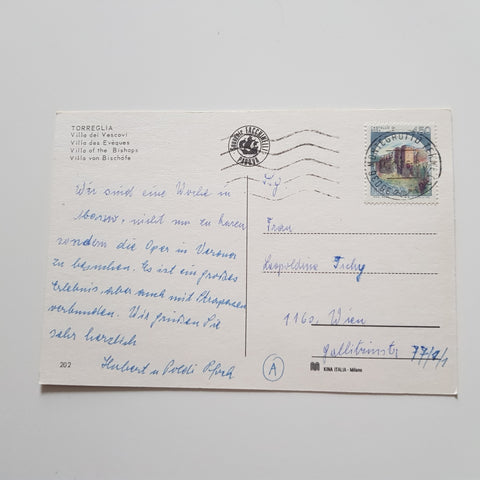 TORREGLIA
Villa dei Vescovi
Villa des Evêques
Villa of the Bishops
Villa von Bischöfe
Wir sind eine Woche in
nicht nur zu kuren
sondern die Oper in Verona
zu besuchen. Es ist ein großes
Erlebnis, aber auch mit Strapazen
verbunden. Wir grüßen Sie
sehr herzlich
Hubert u Poldi
202
450
PADOVA
Frau
Leopoldine Tichy
1160, Wien
Gallitzinstr 77/1/1
A
KINA ITALIA - Milano